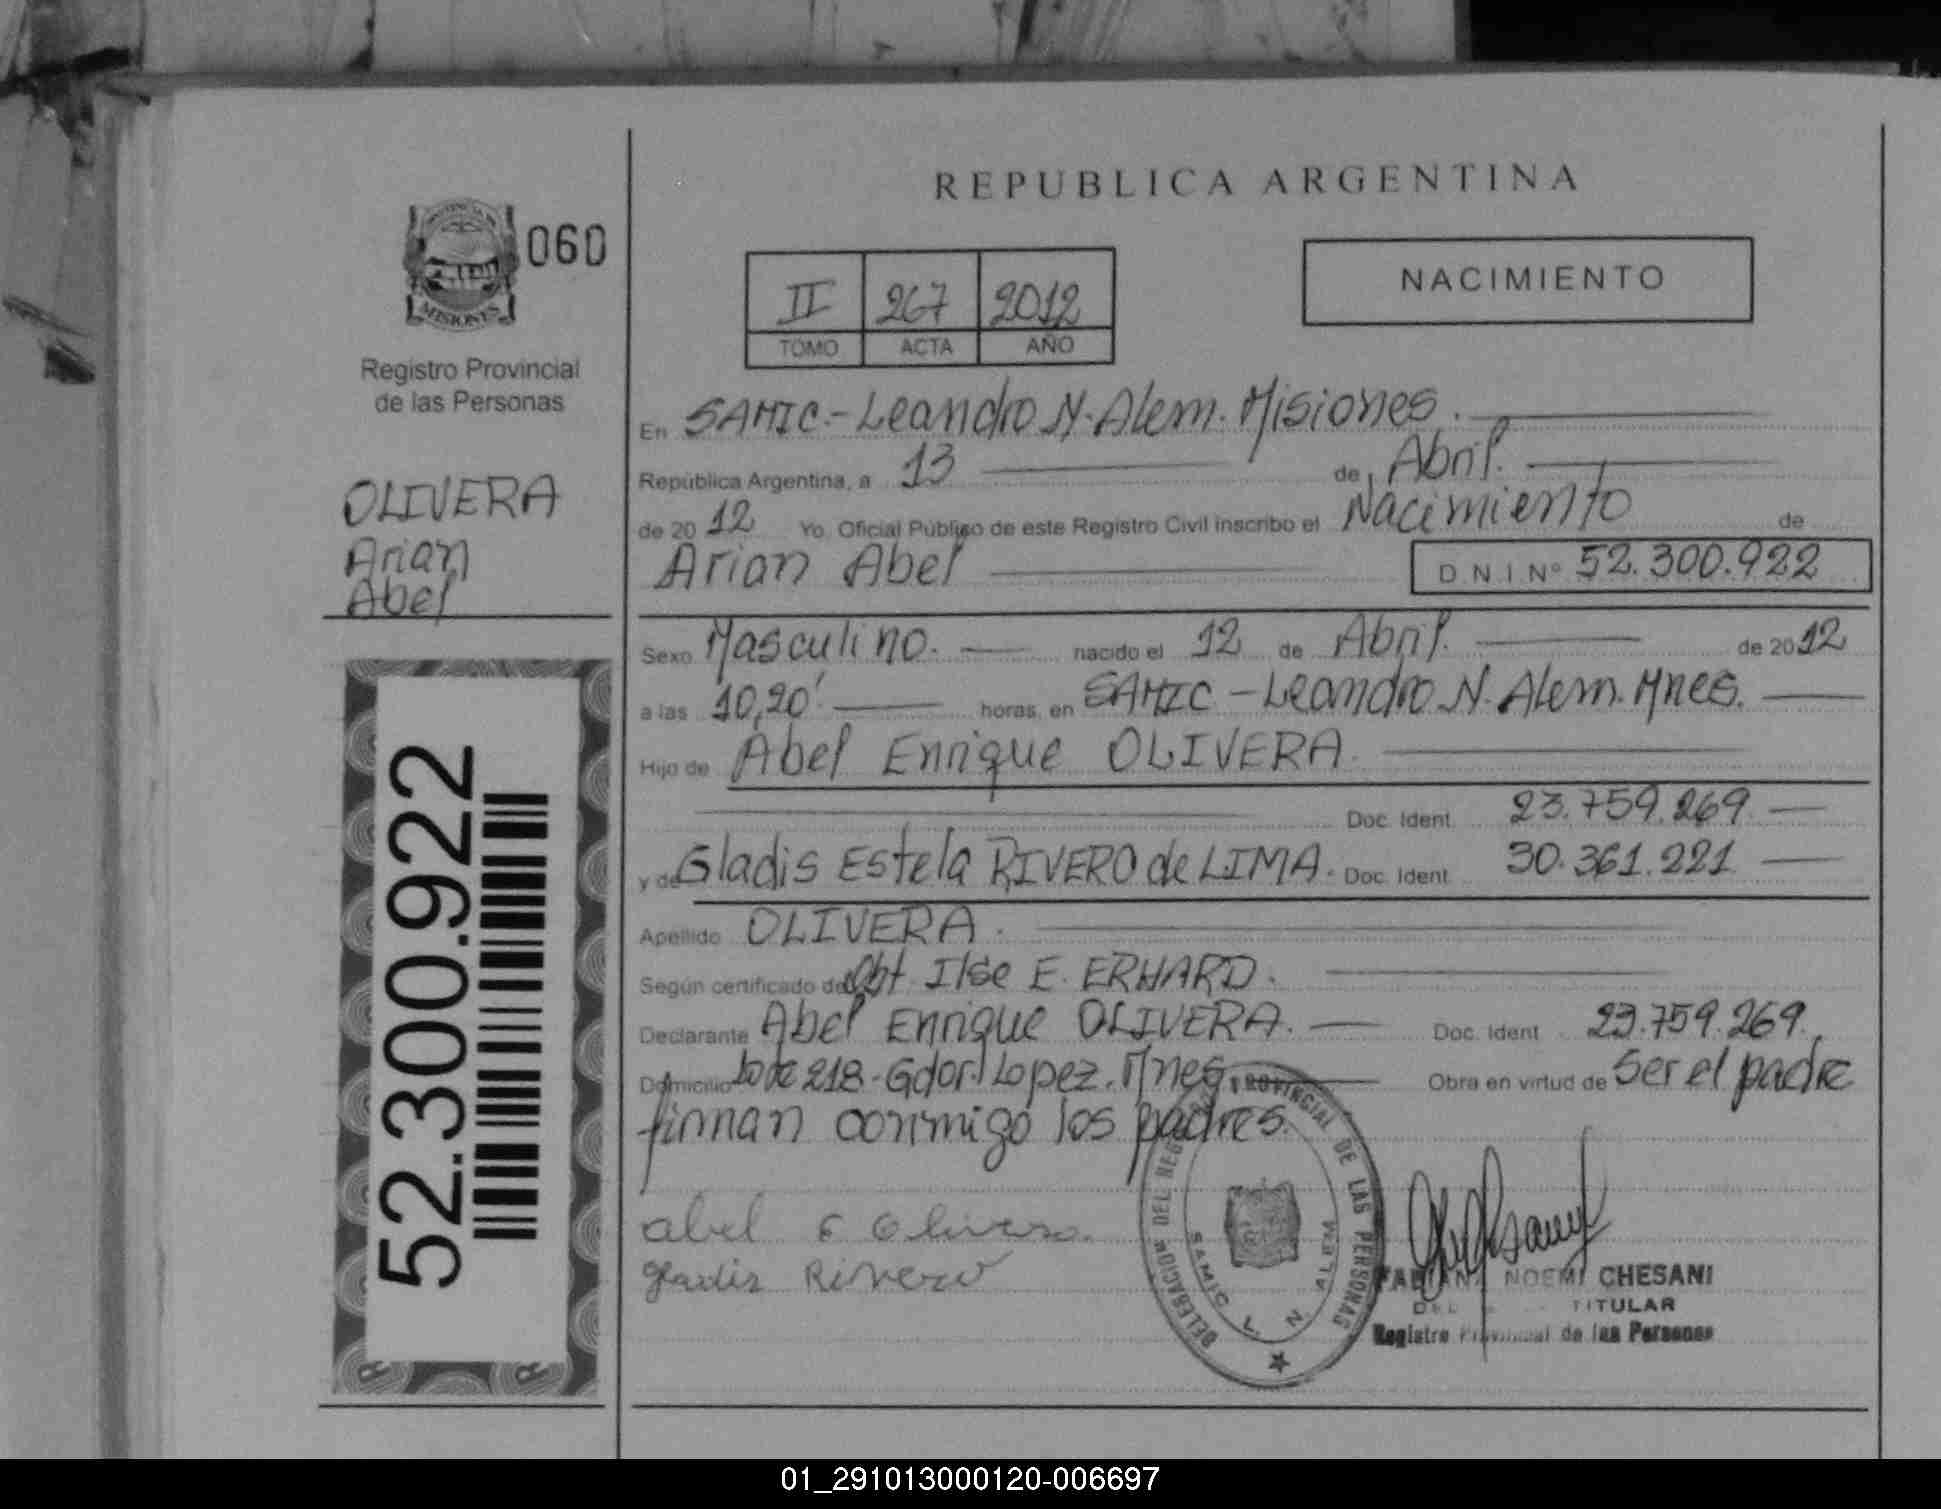 REPUBLICA ARGENTINA
MISIONES
060
Registro Provincial
de las Personas
II 267 2012
TOMO ACTA AÑO
NACIMIENTO
OLIVERA
Arian
Abel
52.300.922
En SAMIC.- Leandro N. Alem. Misiones.
República Argentina, a 13 de Abril.
de 20 12 Yo, Oficial Público de este Registro Civil inscribo el Nacimiento de
Arian Abel D.N.I Nº 52.300.922
Sexo Masculino. nacido el 12 de Abril. de 2012
a las 10,20' horas, en SAMIC - Leandro N. Alem. Mnes.
Hijo de Abel Enrique OLIVERA.
Doc. Ident. 23.759.269.
y de Gladis Estela RIVERO de LIMA. Doc. Ident. 30.361.221
Apellido OLIVERA.
Según certificado de Obt. Ilse E. ERHARD.
Declarante Abel Enrique OLIVERA. Doc. Ident. 23.759.269.
Domicilio Lote 218 - Gdor. Lopez. Mnes. Obra en virtud de Ser el padre
firman conmigo los padres.
abel E Olivera.
gladis Rivero
DELEGACION DEL REG PROVINCIAL DE LAS PERSONAS
SAMIC L. N. ALEM
FABIANA NOEMI CHESANI
TITULAR
Registro Provincial de las Personas
01_291013000120-006697